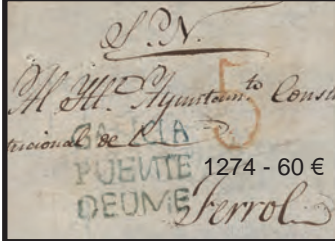 S.N.
5
Al Ill.e Ayuntam.to Consti
tucional de
GALICIA
PUENTE
DEUME
1274 - 60 €
Ferrol